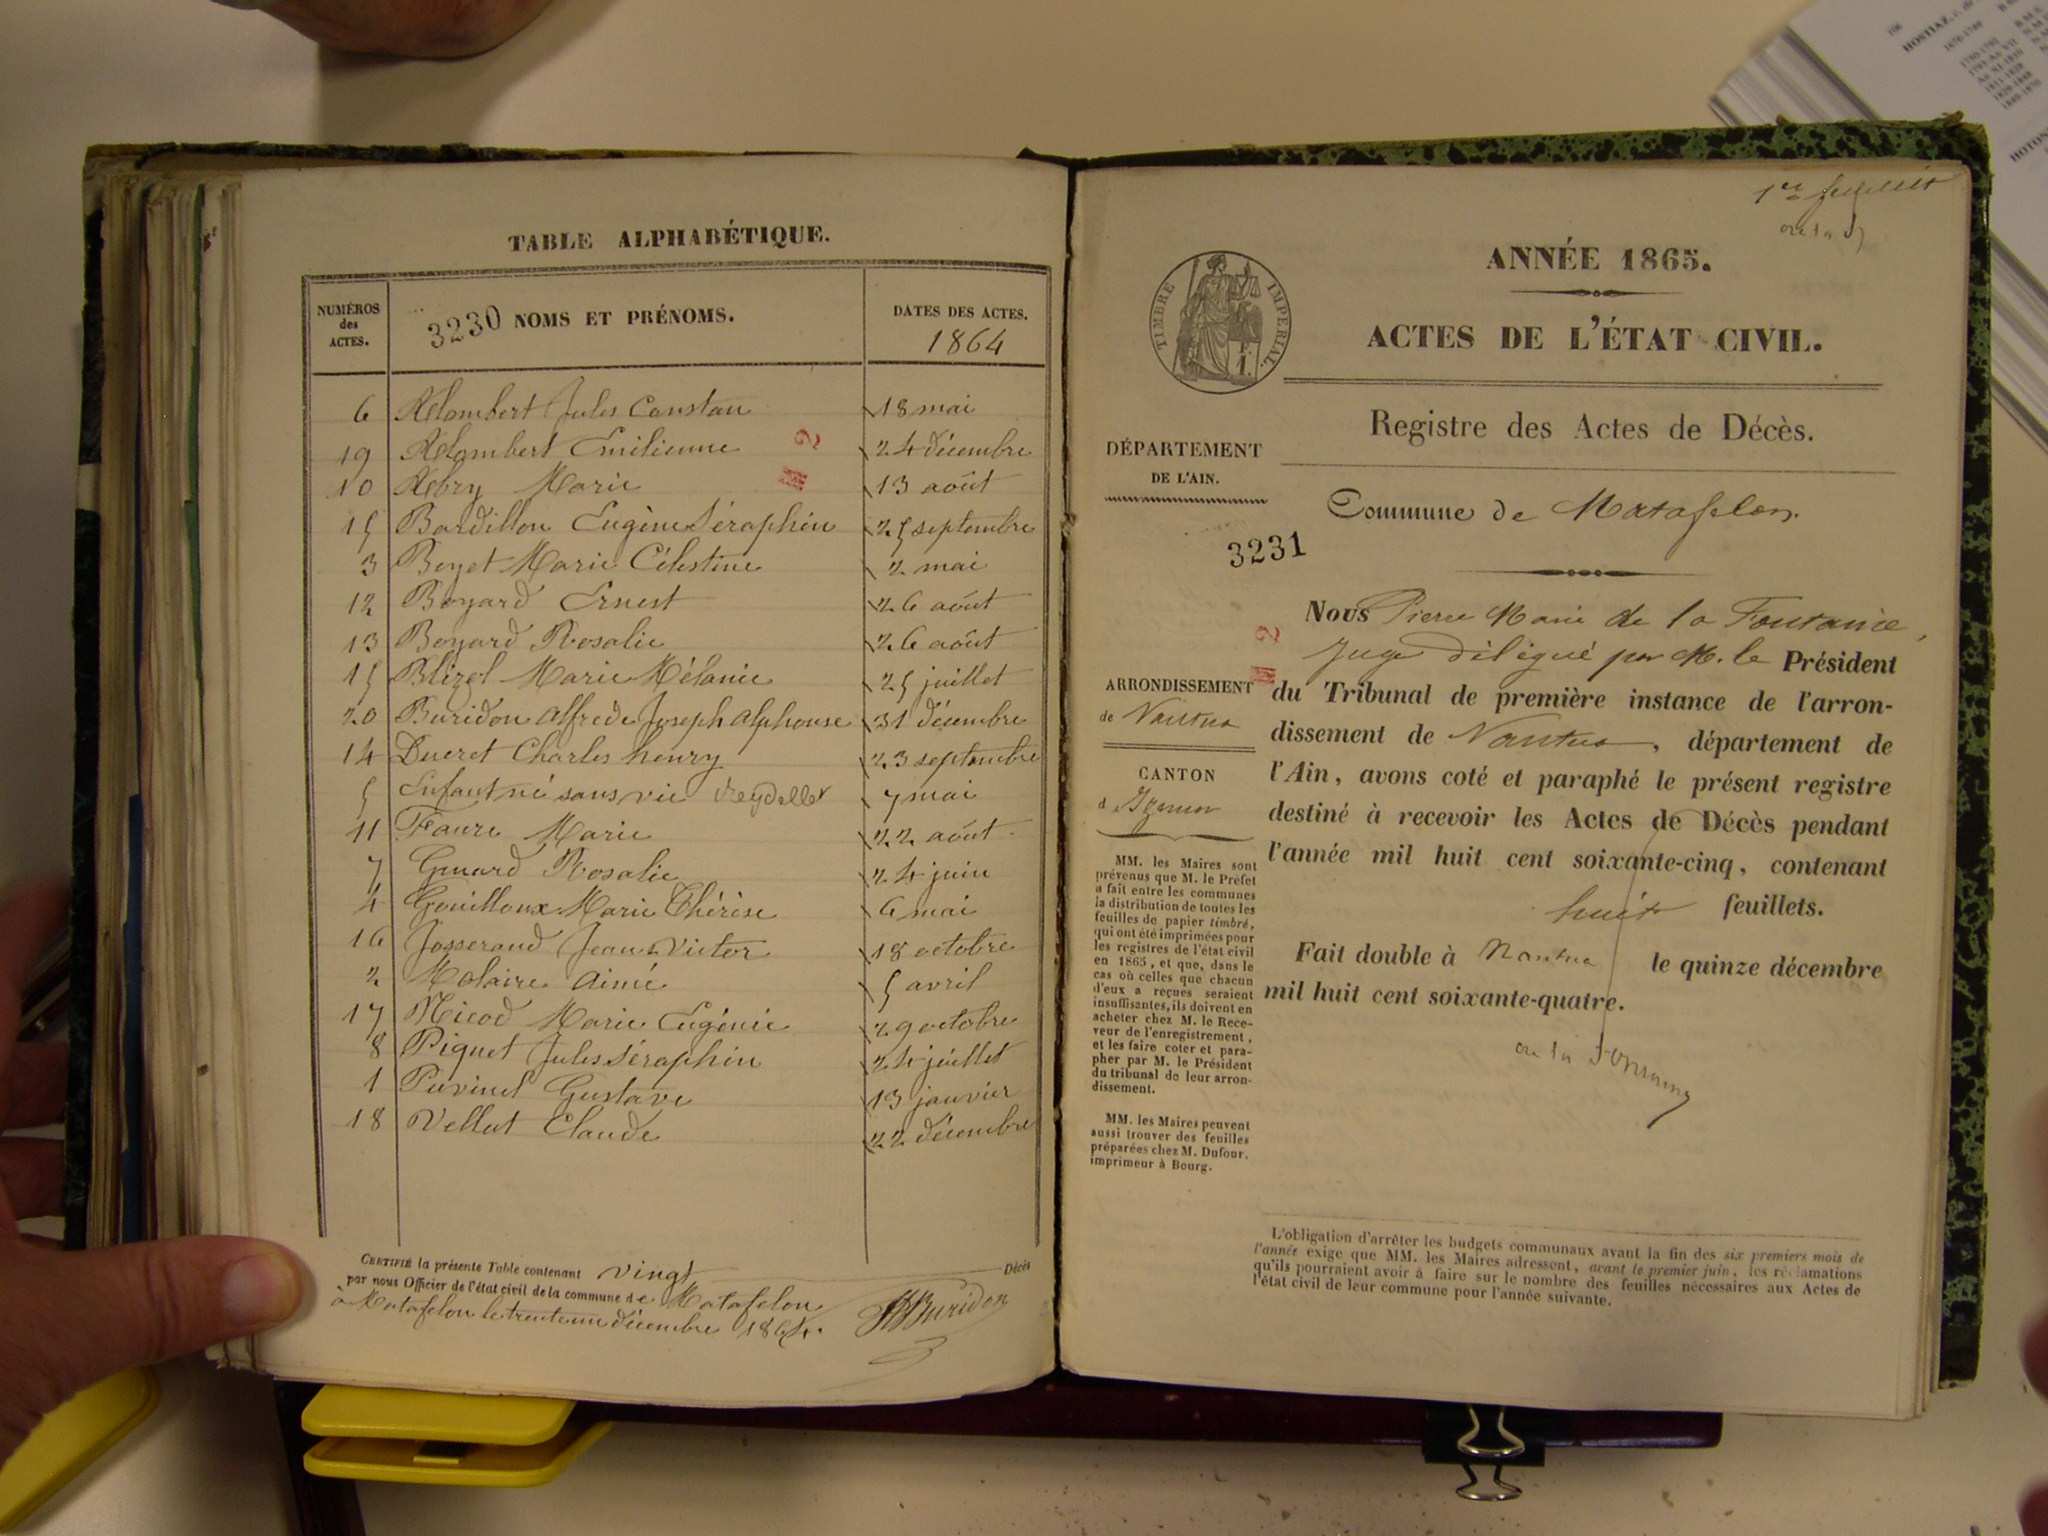 TABLE ALPHABÉTIQUE.
NUMÉROS des ACTES.
3230 NOMS ET PRÉNOMS.
DATES DES ACTES.
1864
6 Alombert Jules Constan 18 mai
19 Alombert Emilienne 24 décembre
10 Aebry Marie 13 août
15 Bardillon Eugène Séraphin 25 septembre
3 Beyet Marie Célestine 2 mai
12 Boyard Ernest 26 août
13 Boyard Rosalie 26 août
15 Blizel Marie Mélanie 25 juillet
20 Buridon alfrède Joseph alphonse 31 décembre
14 Ducret Charles henry 23 septembre
5 Enfant né sans vie Reydellet 7 mai
11 Faure Marie 22 août
7 Guuard Rosalie 24 juin
4 Gouilloux Marie Thérèse 6 mai
16 Josserand Jean Victor 18 octobre
2 Molaire aimé 5 avril
17 Nicod Marie Eugénie 29 octobre
8 Piquet Jules Séraphin 24 juillet
1 Gustave 13 janvier
18 Vellut Claude 22 décembre
CERTIFIÉ la présente Table contenant vingt Décès
par nous Officier de l'état civil de la commune de Matafelon
à Matafelon le trente un décembre 1864.
Buridon
1er feuillet
ANNÉE 1865.
TIMBRE IMPÉRIAL.
ACTES DE L'ÉTAT CIVIL.
Registre des Actes de Décès.
DÉPARTEMENT
DE L'AIN.
Commune de Matafelon
3231
Nous Pierre Marie de la Fontaine,
Juge délégué par M. le Président
du Tribunal de première instance de l'arron-
dissement de Nantua, département de
l'Ain, avons coté et paraphé le présent registre
destiné à recevoir les Actes de Décès pendant
l'année mil huit cent soixante-cinq, contenant
huit feuillets.
Fait double à Nantua le quinze décembre
mil huit cent soixante-quatre.
ARRONDISSEMENT
de Nantua
CANTON
d'Izernor
MM. les Maires sont
prévenus que M. le Préfet
a fait entre les communes
la distribution de toutes les
feuilles de papier timbré,
qui ont été imprimées pour
les registres de l'état civil
en 1865, et que, dans le
cas où celles que chacun
d'eux a reçues seraient
insuffisantes, ils doivent en
acheter chez M. le Rece-
veur de l'enregistrement,
et les faire coter et para-
pher par M. le Président
du tribunal de leur arron-
dissement.
MM. les Maires peuvent
aussi trouver des feuilles
préparées chez M. Dufour,
imprimeur à Bourg.
L'obligation d'arrêter les budgets communaux avant la fin des six premiers mois de
l'année exige que MM. les Maires adressent, avant le premier juin, les réclamations
qu'ils pourraient avoir à faire sur le nombre des feuilles nécessaires aux Actes de
l'état civil de leur commune pour l'année suivante.